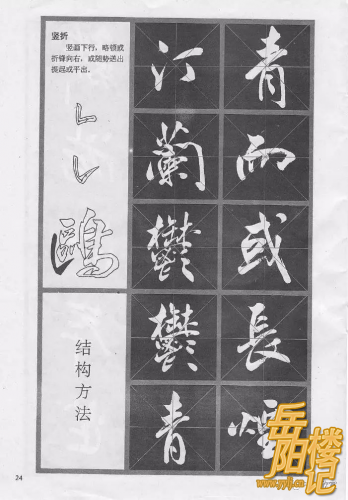 竖折
竖画下行，略顿或
折锋向右，或随势送出
提起或平出。
鷗
结构方法
青
而
或
長
煙
汀
蘭
鬱
鬱
青
24
岳阳楼记